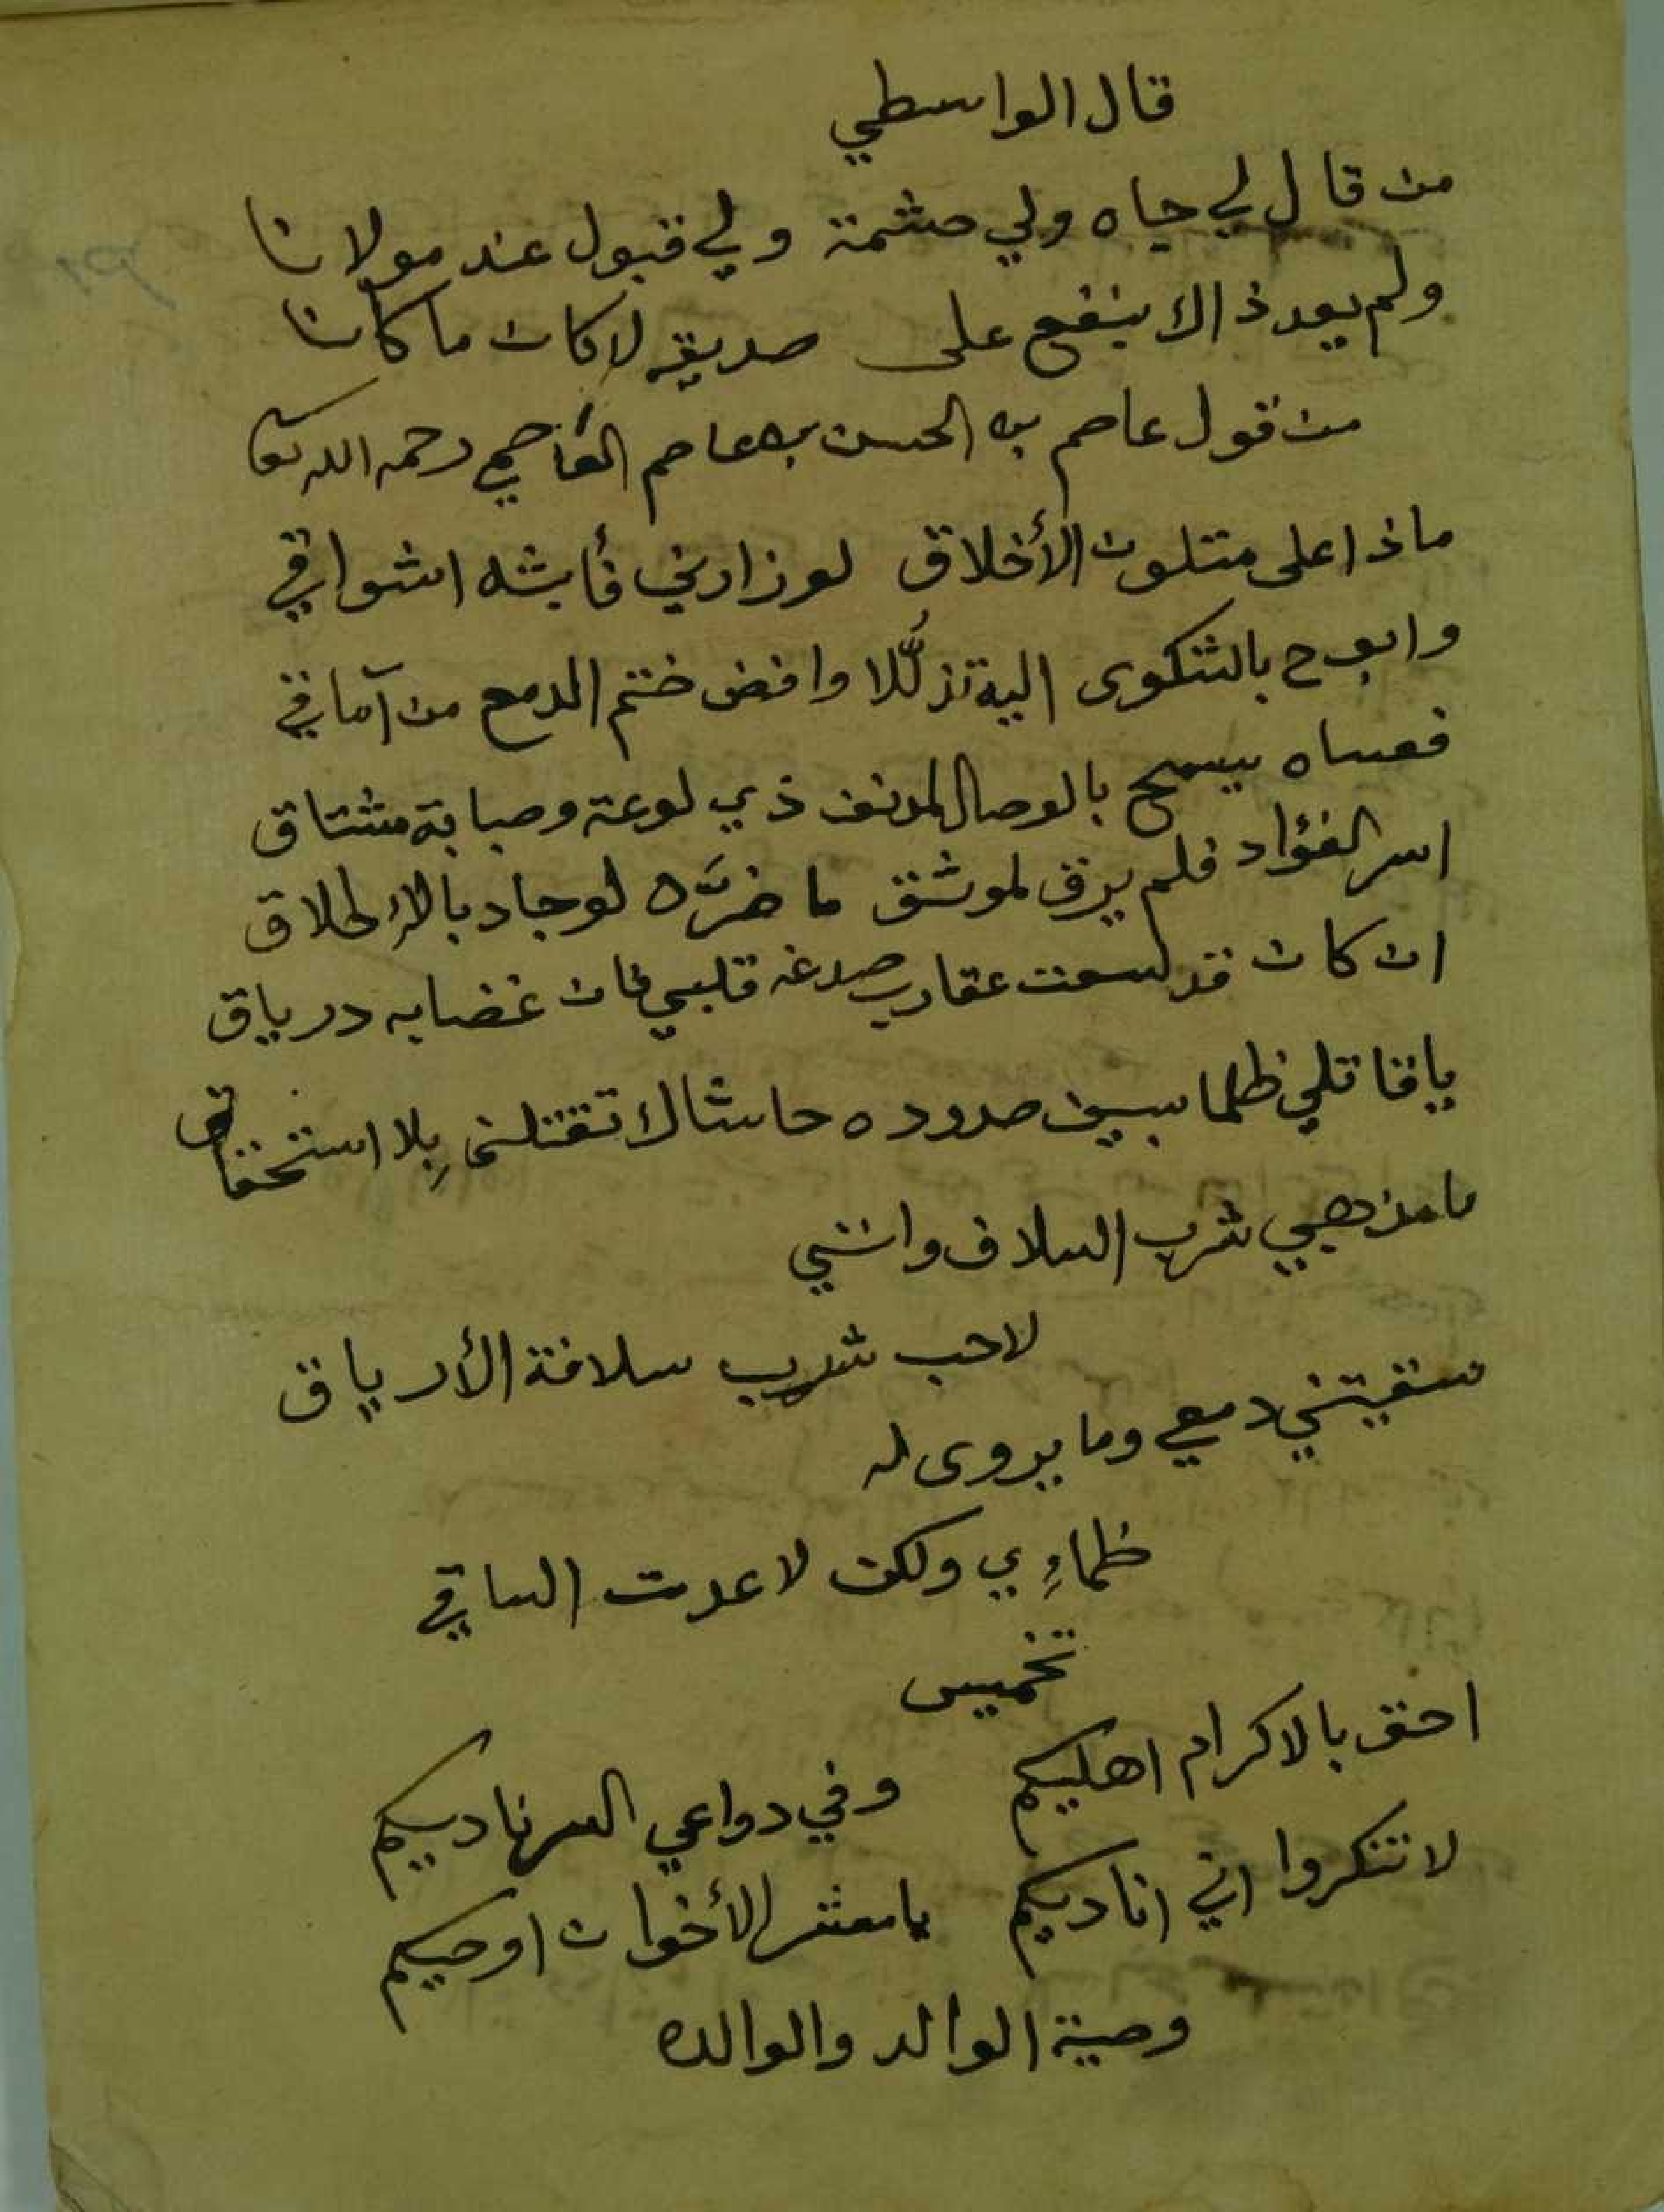 قال الواسطي
من قال لي جاه ولي حشمة ولي قبول عند مولانا
ولم يعد ذاك بنفع على صديقه لا كان ما كانا
من قول عاصم بن الحسن بن عاصم رحمه الله تعا
ماذا على متلون الأخلاق لو زارني فأبثه اشواقي
وابوح بالشكوى اليه تذللا وافض ختم الدمع من آماقي
فعساه يسمح بالوصال لمدنف ذي لوعة وصبابة مشتاق
اسر الفؤاد فلم يرق لموثق ما ضرَّه لو جاد بالإطلاق
ان كان قد لسعت عقارب صدغه قلبي فان غضابه درياق
يا قاتلي ظلما بسيف صدوده حاشاك تقتلني بِلا استحقاق
ما مذهبي شرب السلاف وانني
لاحب شرب سلافة الأرياق
سقيتني دمعي وما يروى له
ظماءِي ولكن لا عدمت الساقي
تخميس
احق بالاكرام اهليكم وفي دواعي السر ناديكم
لا تنكروا اني اناديكم يا معشر الأخوان اوصيكم
وصية الوالد والوالده